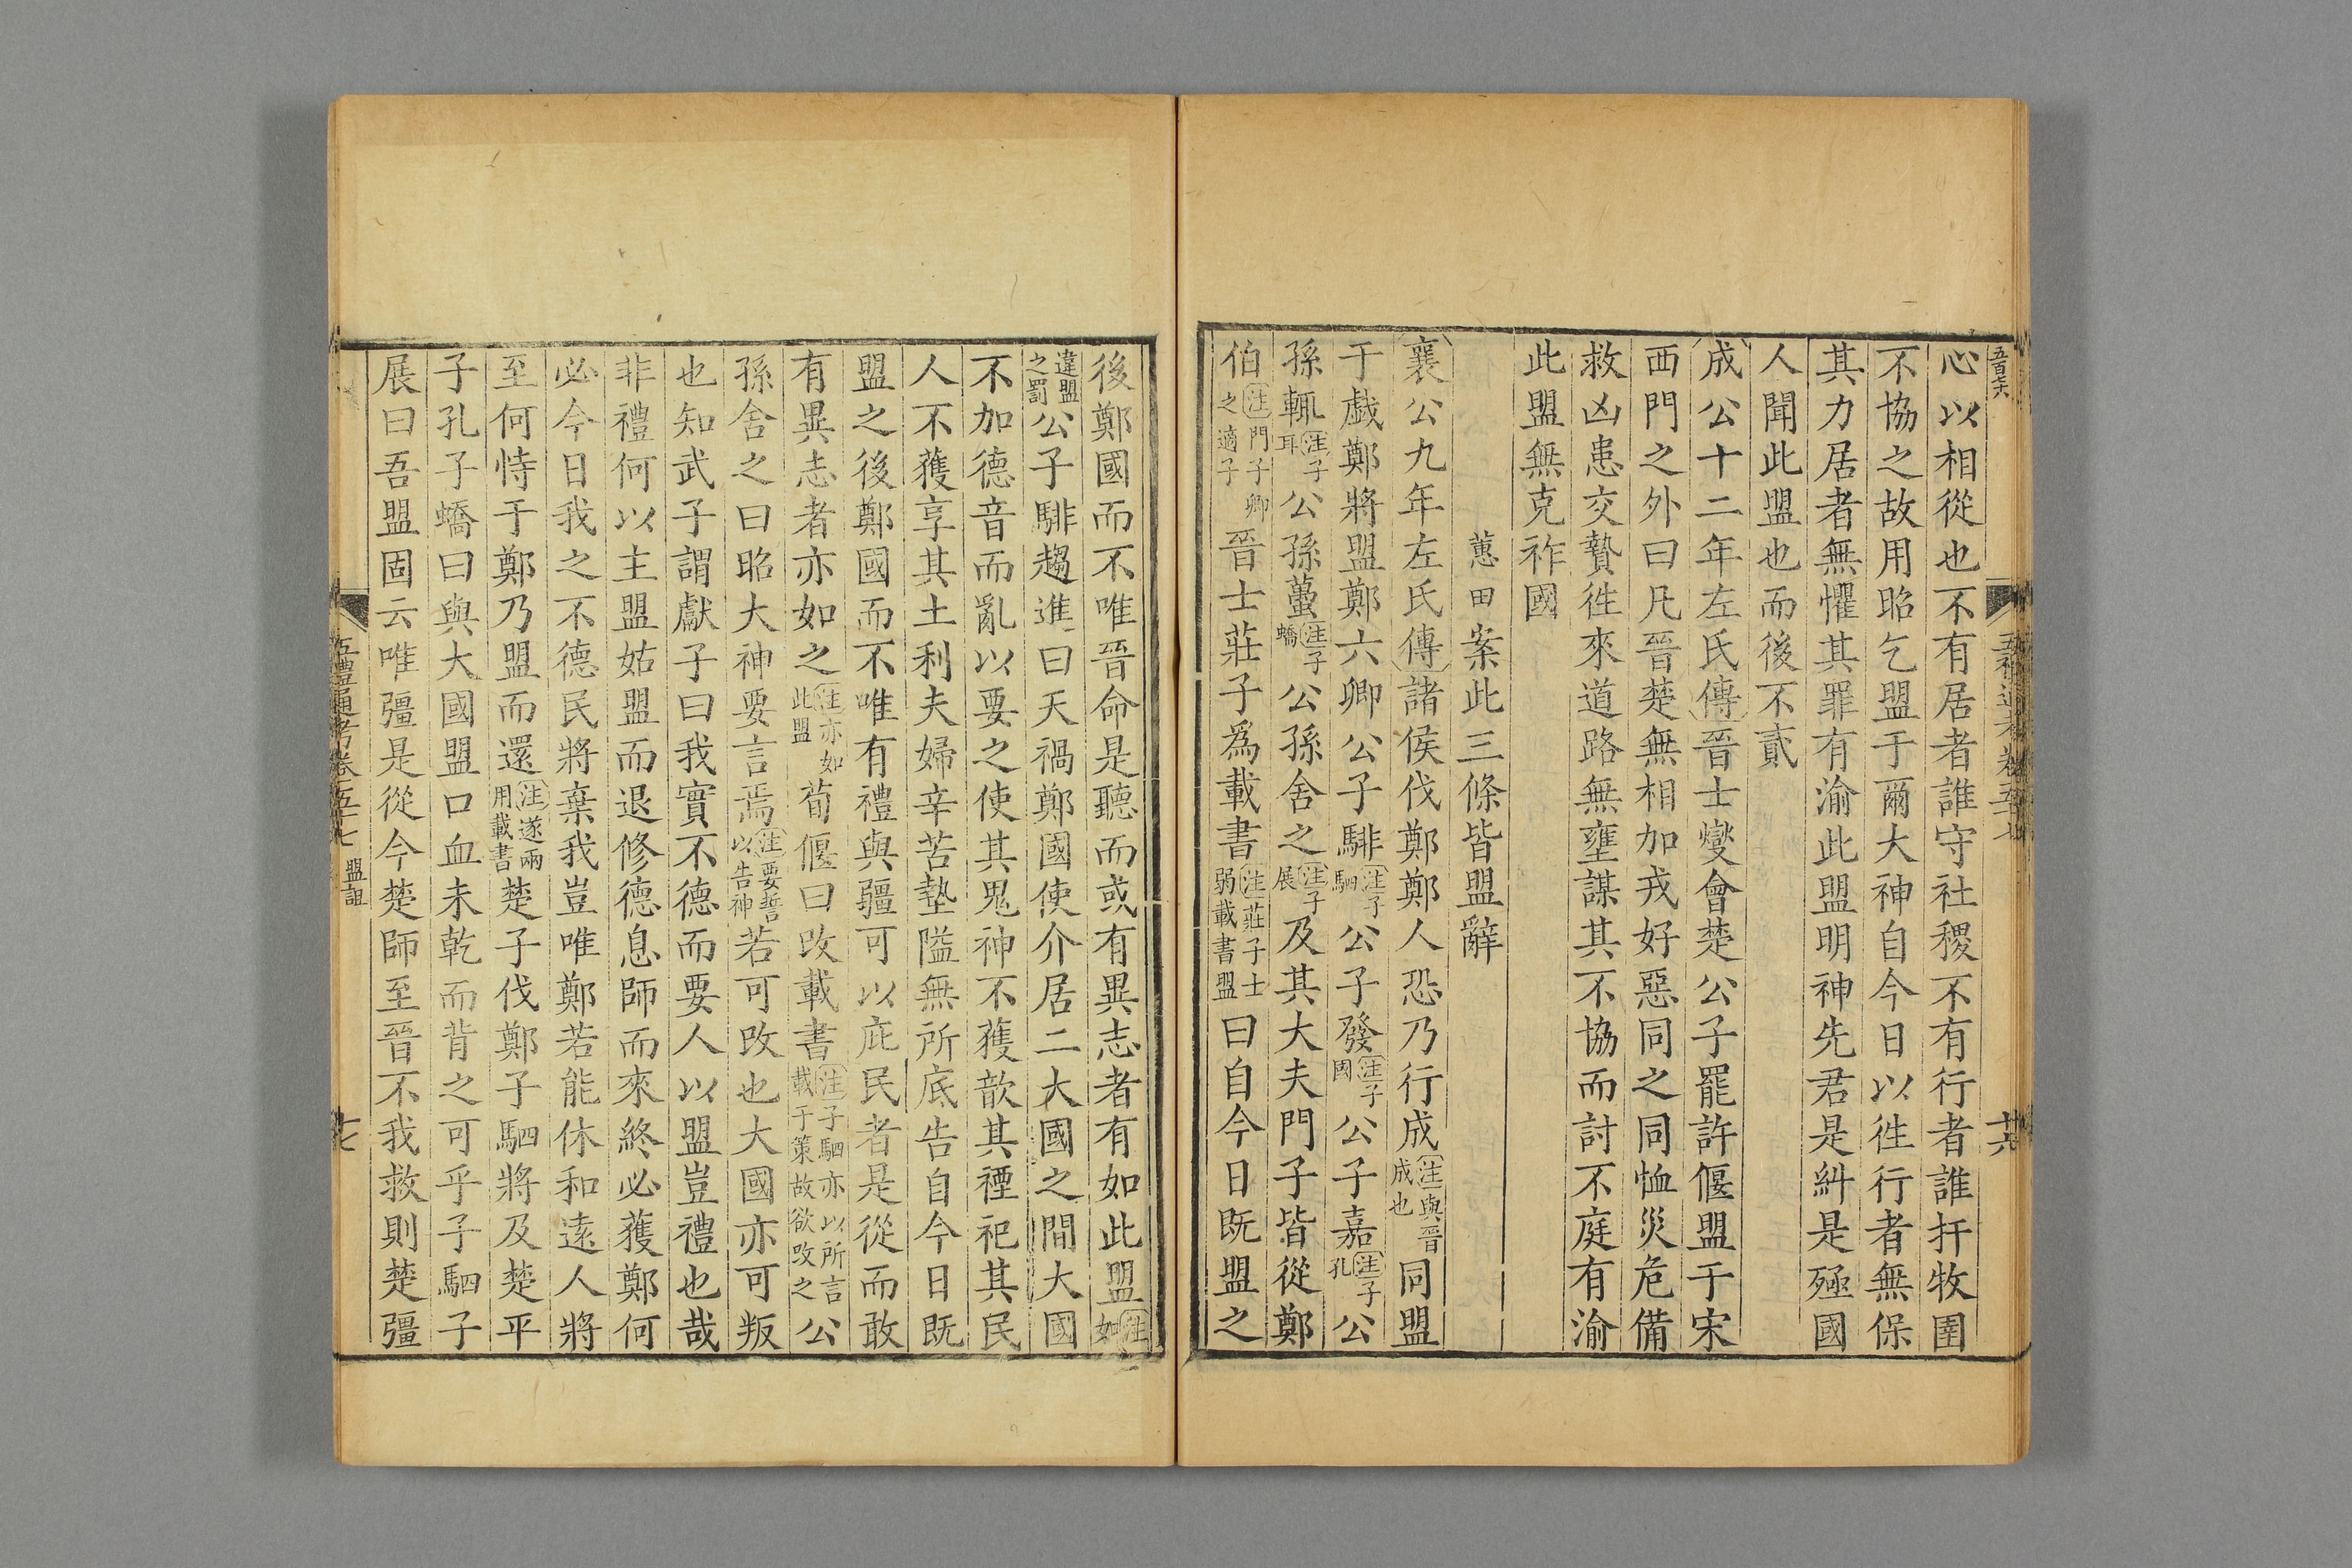 心以相從也不有居者誰守社稷不有行者誰扞牧圉
不協之故用昭乞盟于爾大神自今日以徃行者無保
其力居者無懼其罪有渝此盟明神先君是糾是殛國
人聞此盟也而後不貳
成公十二年左氏傳晉士燮會楚公子罷許偃盟于宋
西門之外曰凡晉楚無相加戎好惡同之同恤災危備
救凶患交贄徃來道路無壅謀其不協而討不庭有渝
此盟無克祚國
蕙田案此三條皆盟辭
襄公九年左氏傳諸侯伐鄭鄭人恐乃行成注與晉成也同盟
于戲鄭將盟鄭六卿公子騑注子駟公子發注子國公子嘉注子孔公
孫輒注子耳公孫蠆注子蟜公孫舍之注子展及其大夫門子皆從鄭
伯注門子卿之適子晉士莊子爲載書注莊子士弱載書盟曰自今日既盟之
後鄭國而不唯晉命是聽而或有異志者有如此盟注如
違盟之罰公子騑趨進曰天禍鄭國使介居二大國之間大國
不加德音而亂以要之使其鬼神不獲歆其禋祀其民
人不獲享其土利夫婦辛苦墊隘無所底告自今日既
盟之後鄭國而不唯有禮與彊可以庇民者是從而敢
有異志者亦如之注亦如此盟荀偃曰改載書注子駟亦以所言載于策故欲改之公
孫舍之曰昭大神要言焉注要誓以告神若可改也大國亦可叛
也知武子謂獻子曰我實不德而要人以盟豈禮也哉
非禮何以主盟姑盟而退修德息師而來終必獲鄭何
必今日我之不德民將棄我豈唯鄭若能休和遠人將
至何恃于鄭乃盟而還注遂兩用載書楚子伐鄭子駟將及楚平
子孔子蟜曰與大國盟口血未乾而背之可乎子駟子
展曰吾盟固云唯彊是從今楚師至晉不我救則楚彊
五禮通考卷五十七 盟詛
十七